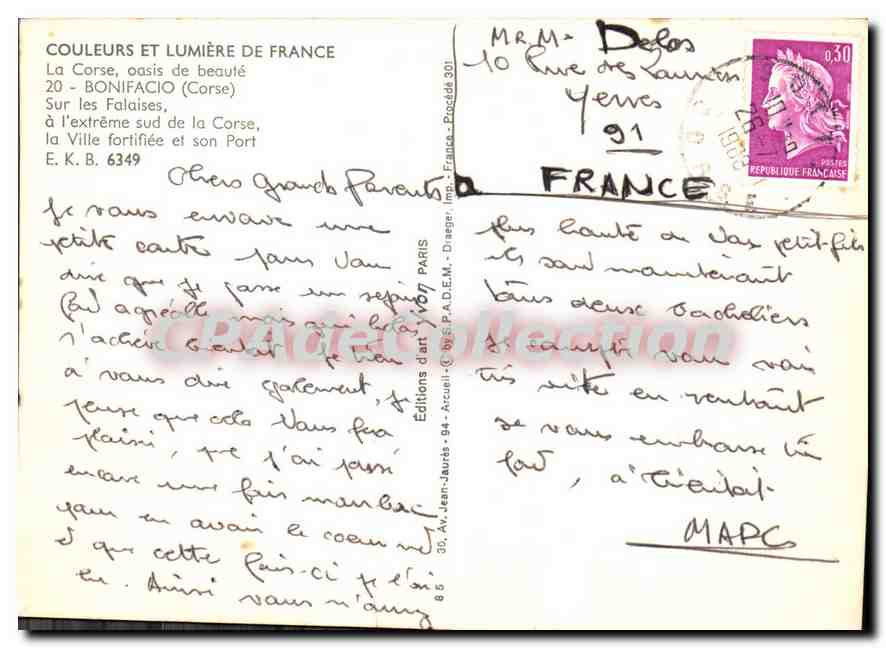 COULEURS ET LUMIÈRE DE FRANCE
La Corse, oasis de beauté
20 - BONIFACIO (Corse)
Sur les Falaises,
à l'extrême sud de la Corse,
la Ville fortifiée et son Port
E. K. B. 6349
Chers grands Parents
Je vous envoie une
petite carte pour vous
dire que je passe un séjour
fort agréable mais qui hélas
s'achève bientôt. Je tiens
à vous dire également, je
pense que cela vous fera
plaisir, que j'ai passé
encore une fois mon bac
pour en avoir le coeur net
et que cette fois-ci je l'ai
eu. Ainsi vous n'aurez
Éditions d'art Yvon PARIS
30, Av. Jean-Jaurès - 94 - Arcueil - © by S.P.A.D.E.M. - Draeger, Imp. - France - Procédé 301
8 5
MR. Me Delos
10 Rue des
Yerres
91
FRANCE
0,30
POSTES
REPUBLIQUE FRANÇAISE
26-7
plus honte de vos petit-fils
ils sont maintenant
tous deux bacheliers
Je compte vous voir
très vite en rentrant
Je vous embrasse très
fort, à bientôt.
MARC
CPADeCollection